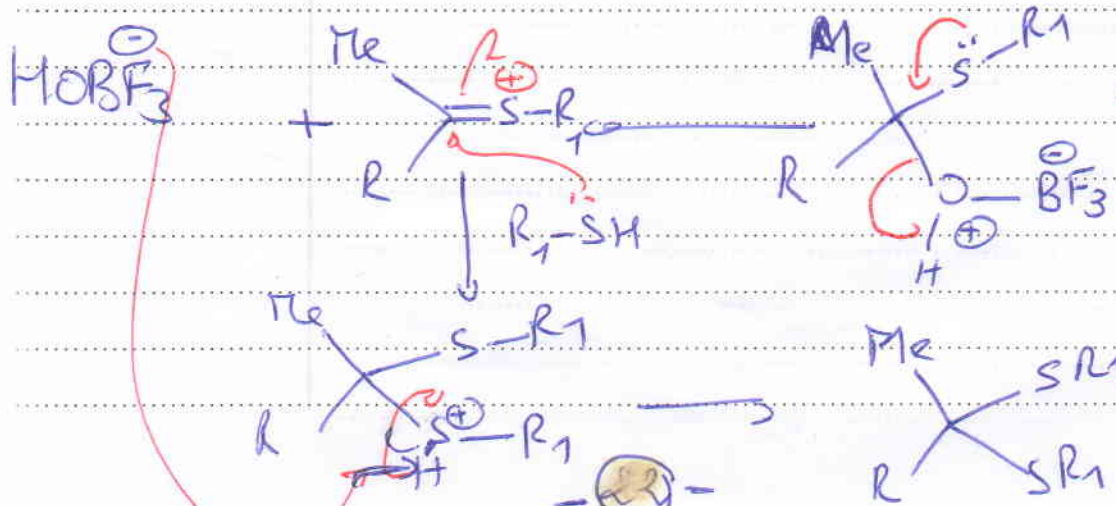 HOBF3 ⊖
+
Me R =S⊕-R1
Me R S̈-R1 O⊕-BF3⊖ H
R1-SH
Me R S-R1 S⊕-R1 H
Me R SR1 SR1